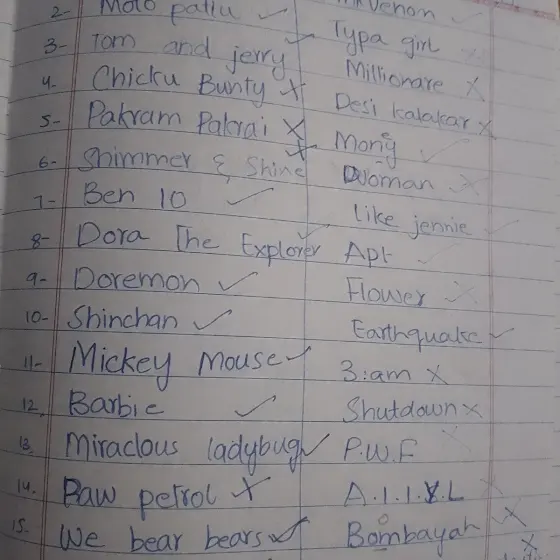 2- Moto patlu ✓ Venom ✓
3- Tom and jerry ✓ Typa girl
4- Chicku Bunty x Millionare x
5- Pakram Pakrai x Desi kalakar x
6- Shimmer & Shine x Money ✓
7- Ben 10 ✓ Woman x
8- Dora The Explorer ✓ like jennie ✓
9- Doremon ✓ Apt ✓
10- Shinchan ✓ Flower x
11- Mickey Mouse ✓ Earthquake ✓
12, Barbie ✓ 3:am x
13. Miraclous ladybug ✓ Shutdown x
14. Paw petrol x P.W.F x
15- We bear bears ✓ A.I.I.Y.L x
Bombayah x